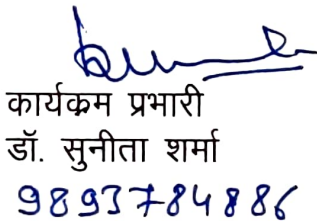 कार्यक्रम प्रभारी
डॉ. सुनीता शर्मा
9893784886